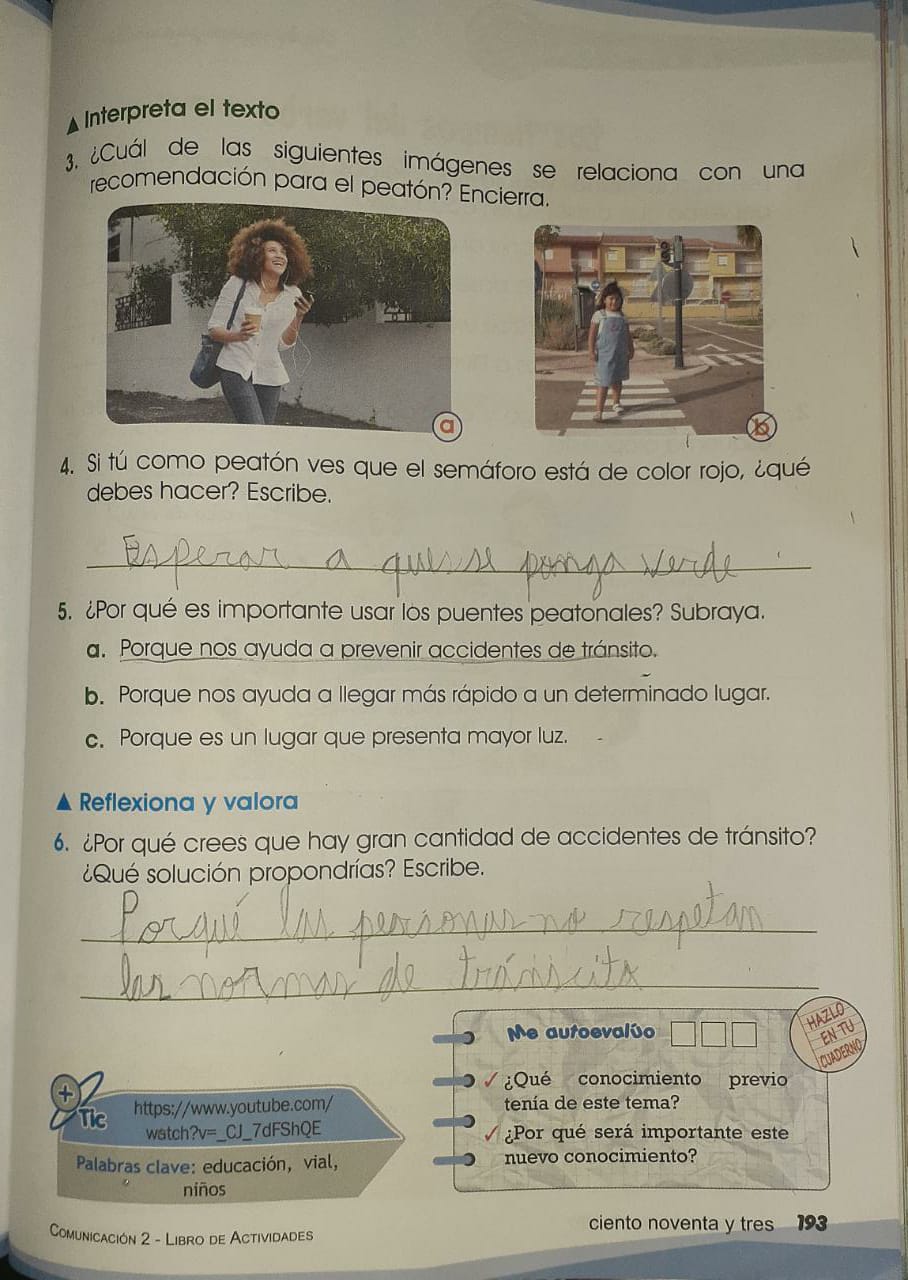 Interpreta el texto
3. ¿Cuál de las siguientes imágenes se relaciona con una
recomendación para el peatón? Encierra.
a
b
4. Si tú como peatón ves que el semáforo está de color rojo, ¿qué
debes hacer? Escribe.
Esperar a que se ponga verde
5. ¿Por qué es importante usar los puentes peatonales? Subraya.
a. Porque nos ayuda a prevenir accidentes de tránsito.
b. Porque nos ayuda a llegar más rápido a un determinado lugar.
c. Porque es un lugar que presenta mayor luz.
Reflexiona y valora
6. ¿Por qué crees que hay gran cantidad de accidentes de tránsito?
¿Qué solución propondrías? Escribe.
Porqué las personas no respetan
las normas de tránscito
Me autoevalúo
HAZLO
EN TU
CUADERNO
✓ ¿Qué conocimiento previo
tenía de este tema?
✓ ¿Por qué será importante este
nuevo conocimiento?
+
Tic
https://www.youtube.com/
watch?v=_CJ_7dFShQE
Palabras clave: educación, vial,
niños
Comunicación 2 - Libro de Actividades
ciento noventa y tres 193